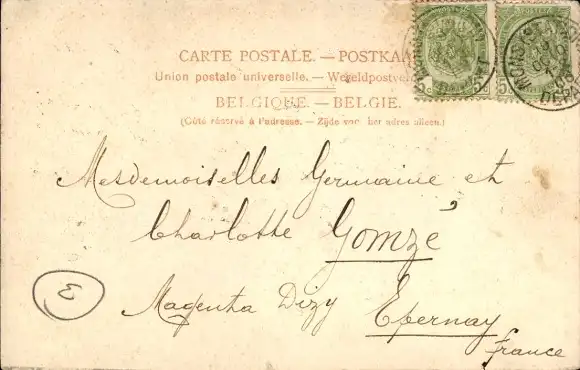 CARTE POSTALE. — POSTKAA
Union postale universelle. — Wereldpostve
BELGIQUE. — BELGIE.
(Côté réservé à l'adresse. — Zijde voor het adres alleen.)
Mesdemoiselles Germaine et
Charlotte Gomzé
Magenta Dizy Epernay
France
E